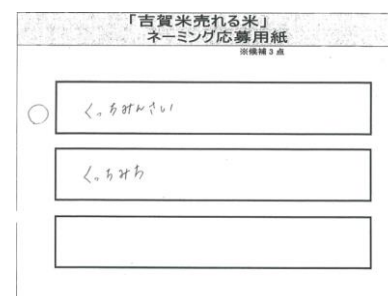 「吉賀米売れる米」
ネーミング応募用紙
※候補3点
くっちみんさい
くっちみち